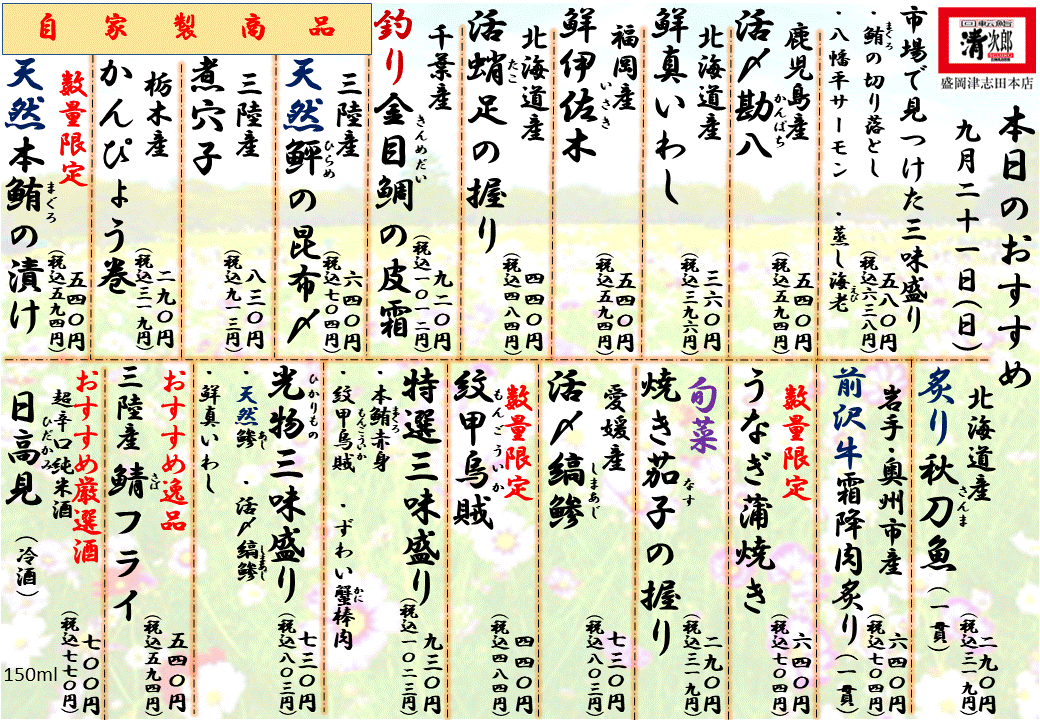 回転鮨
清次郎
盛岡津志田本店
本日のおすすめ
九月二十一日(日)
市場で見つけた三味盛り
・鮪の切り落とし
まぐろ
・八幡平サーモン ・蒸し海老
えび
五八〇円
(税込六三八円)
鹿児島産
活〆勘八
かんぱち
五四〇円
(税込五九四円)
北海道産
鮮真いわし
三六〇円
(税込三九六円)
福岡産
鮮伊佐木
いさき
五四〇円
(税込五九四円)
北海道産
活蛸足の握り
たこ
四四〇円
(税込四八四円)
千葉産
釣り金目鯛の皮霜
きんめだい
九二〇円
(税込一〇一二円)
自家製商品
三陸産
天然鮃の昆布〆
ひらめ
六四〇円
(税込七〇四円)
三陸産
煮穴子
八三〇円
(税込九一三円)
栃木産
かんぴょう巻
二九〇円
(税込三一九円)
数量限定
天然本鮪の漬け
まぐろ
五四〇円
(税込五九四円)
北海道産
炙り秋刀魚(一貫)
さんま
二九〇円
(税込三一九円)
岩手・奥州市産
前沢牛霜降肉炙り(一貫)
六四〇円
(税込七〇四円)
数量限定
うなぎ蒲焼き
六四〇円
(税込七〇四円)
旬菜
焼き茄子の握り
なす
二九〇円
(税込三一九円)
愛媛産
活〆縞鯵
しまあじ
七三〇円
(税込八〇三円)
数量限定
紋甲烏賊
もんごういか
四四〇円
(税込四八四円)
特選三味盛り
・本鮪赤身
まぐろ
・紋甲烏賊 ・ずわい蟹棒肉
もんごういか
かに
九三〇円
(税込一〇二三円)
光物三味盛り
ひかりもの
・天然鯵 ・活〆縞鯵
あじ
しまあじ
・鮮真いわし
七三〇円
(税込八〇三円)
おすすめ逸品
三陸産 鯖フライ
さば
五四〇円
(税込五九四円)
おすすめ厳選酒
超辛口純米酒
日高見 (冷酒)
ひだかみ
七〇〇円
(税込七七〇円)
150ml